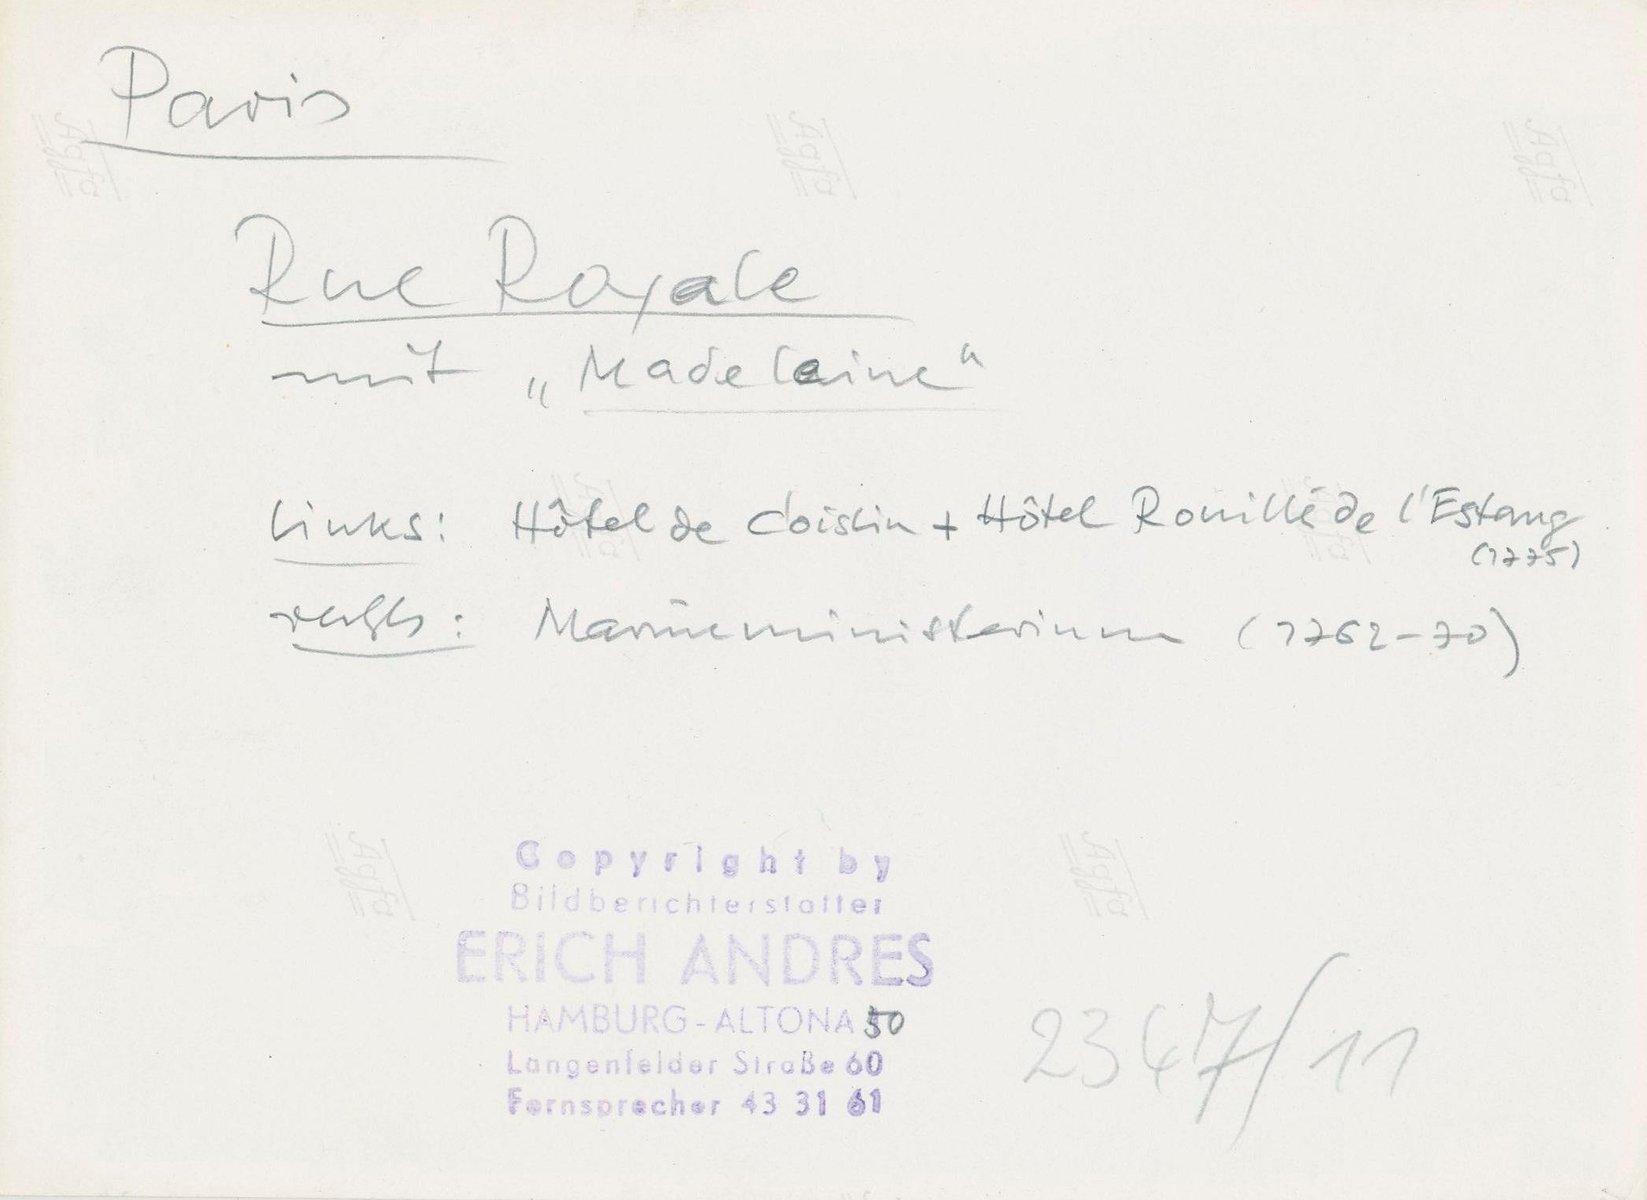 Paris
Rue Royale
mit „Madeleine“
links: Hôtel de Coislin + Hôtel Rouillé de l'Estang
(1775)
rechts: Marineministerium (1762-70)
Copyright by
Bildberichterstatter
ERICH ANDRES
HAMBURG-ALTONA 50
Langenfelder Straße 60
Fernsprecher 43 31 61
2347/11
Agfa
Agfa
Agfa
Agfa
Agfa